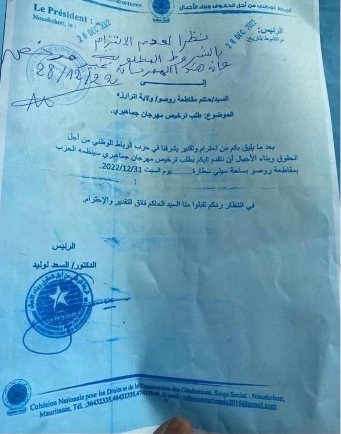 الرباط الوطني من أجل الحقوق وبناء الأجيال
Le Président :
الرئيس:
Nouakchott, le :
28 DEC 2022
28 DEC 2022
نظرا لعدم الالتزام
بالشروط المطلوبة
فإن هذا المهرجان غير مرخص
28/12/22
إلـــى
السيد/حاكم مقاطعة روصو/ ولاية اترارزه
الموضوع: طلب ترخيص مهرجان جماهيري.
بعد ما يليق بكم من احترام وتقدير يشرفنا في حزب الرباط الوطني من أجل
الحقوق وبناء الأجيال أن نتقدم إليكم بطلب ترخيص مهرجان جماهيري سينظمه الحزب
بمقاطعة روصو بساحة سيتي سطارة.........يوم السبت 2022/12/31.
في انتظار ردكم تقبلوا منا السيد الحاكم فائق التقدير والإحترام.
الرئيس
الدكتور/ السعد لوليد
Cohésion Nationale pour les Droits et de la Construction des Générations, Siège Social : Nouakchott,
Mauritanie, Tél. :36432335,46432335, E-mail : cohesionnationale2016@gmail.com